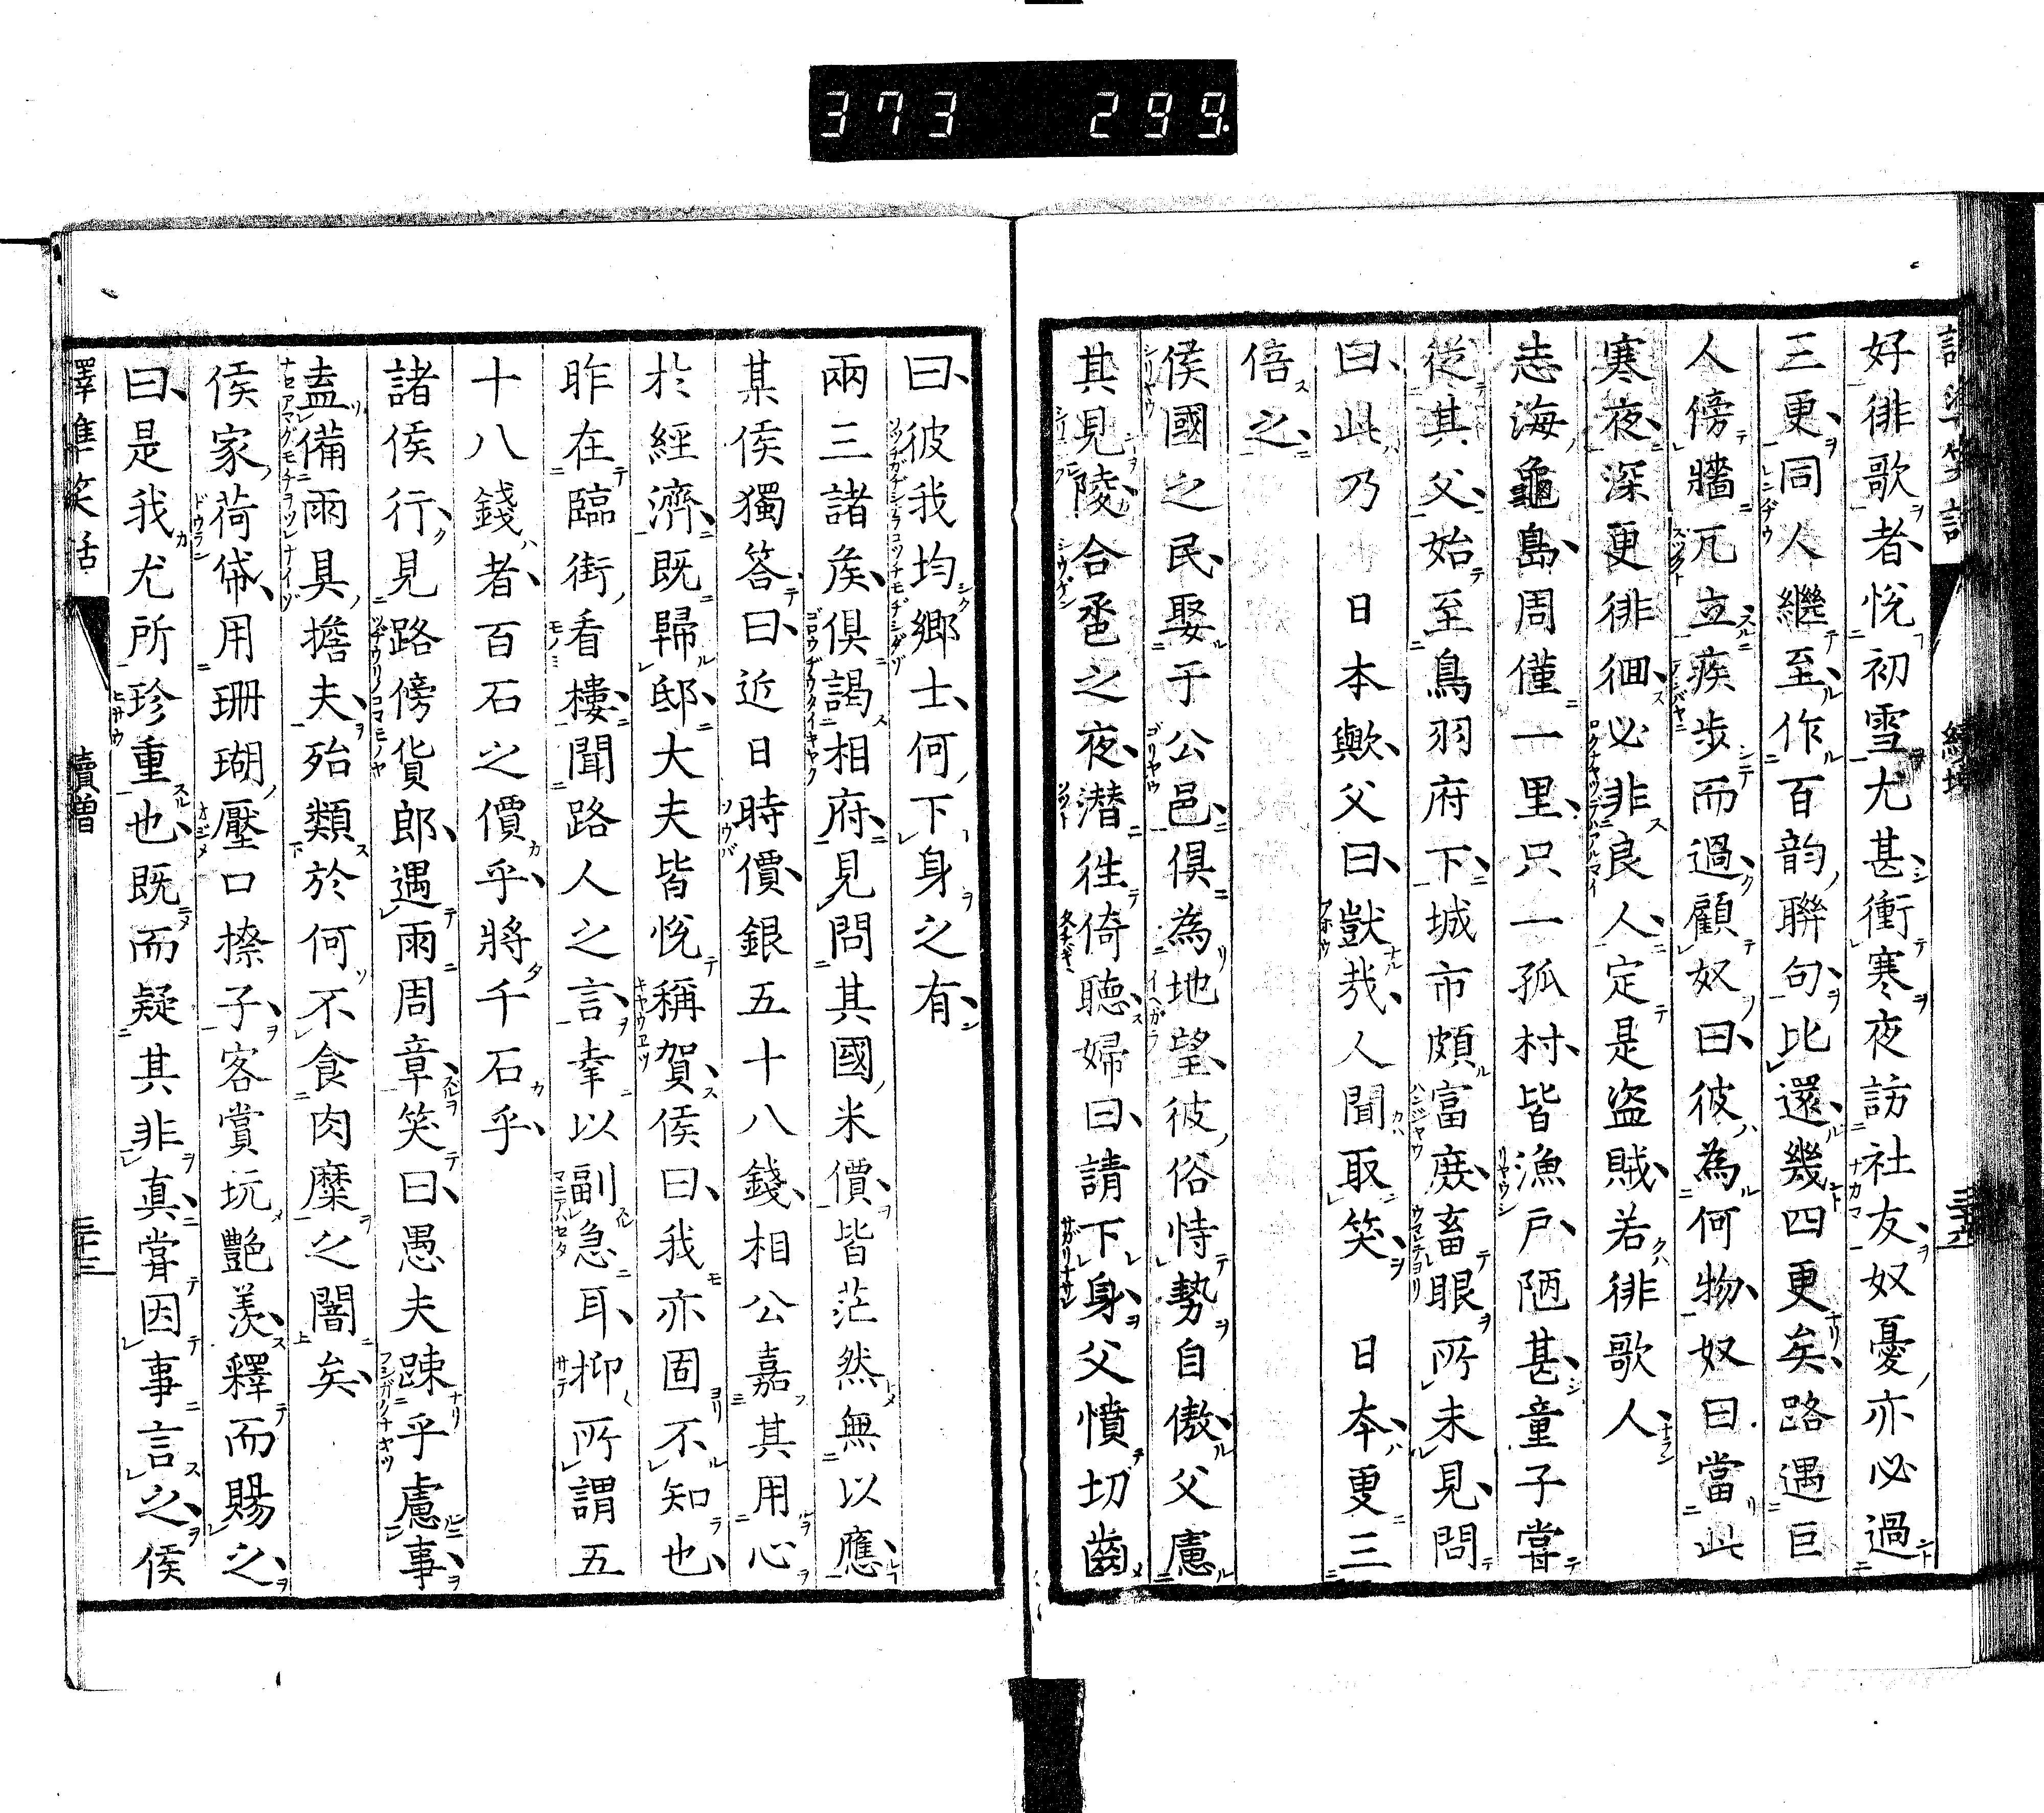 373 299.
好俳歌者、悅初雪尤甚、衝寒夜訪社友、奴憂亦必過
三更、同人繼至、作百韵聯句、比還、幾四更矣、路遇巨
人傍牆兀立、疾步而過、顧奴曰、彼為何物、奴曰、當此
寒夜、深更徘徊、必非良人、定是盜賊、若俳歌人、
志海龜島、周僅一里、只一孤村、皆漁戶、陋甚、童子嘗
從其父、始至鳥羽府下、城市頗富庶、畜眼所未見、問
曰、此乃 日本歟、父曰、獃哉、人聞取笑、 日本、更三
倍之、
侯國之民、娶于公邑、俱為地望、彼俗恃勢自傲、父慮
其見陵、合巹之夜、潛往倚聽、婦曰、請下身、父憤切齒
曰、彼我均鄉士、何下身之有、
兩三諸矦、俱謁相府、見問其國米價、皆茫然無以應、
某侯獨答曰、近日時價、銀五十八錢、相公嘉其用心
於經濟、既歸邸、大夫皆悅稱賀、侯曰、我亦固不知也、
昨在臨街看樓、聞路人之言、幸以副急耳、抑所謂五
十八錢者、百石之價乎、將千石乎、
諸侯行、見路傍貨郎、遇雨周章、笑曰、愚夫踈乎慮事、
盍備雨具擔夫、殆類於何不食肉糜之闇矣、
侯家荷帒、用珊瑚壓口捺子、客賞玩艷羨、釋而賜之、
曰、是我尤所珍重也、既而疑其非真、嘗因事言之、侯
譯準笑話
續增
三十二